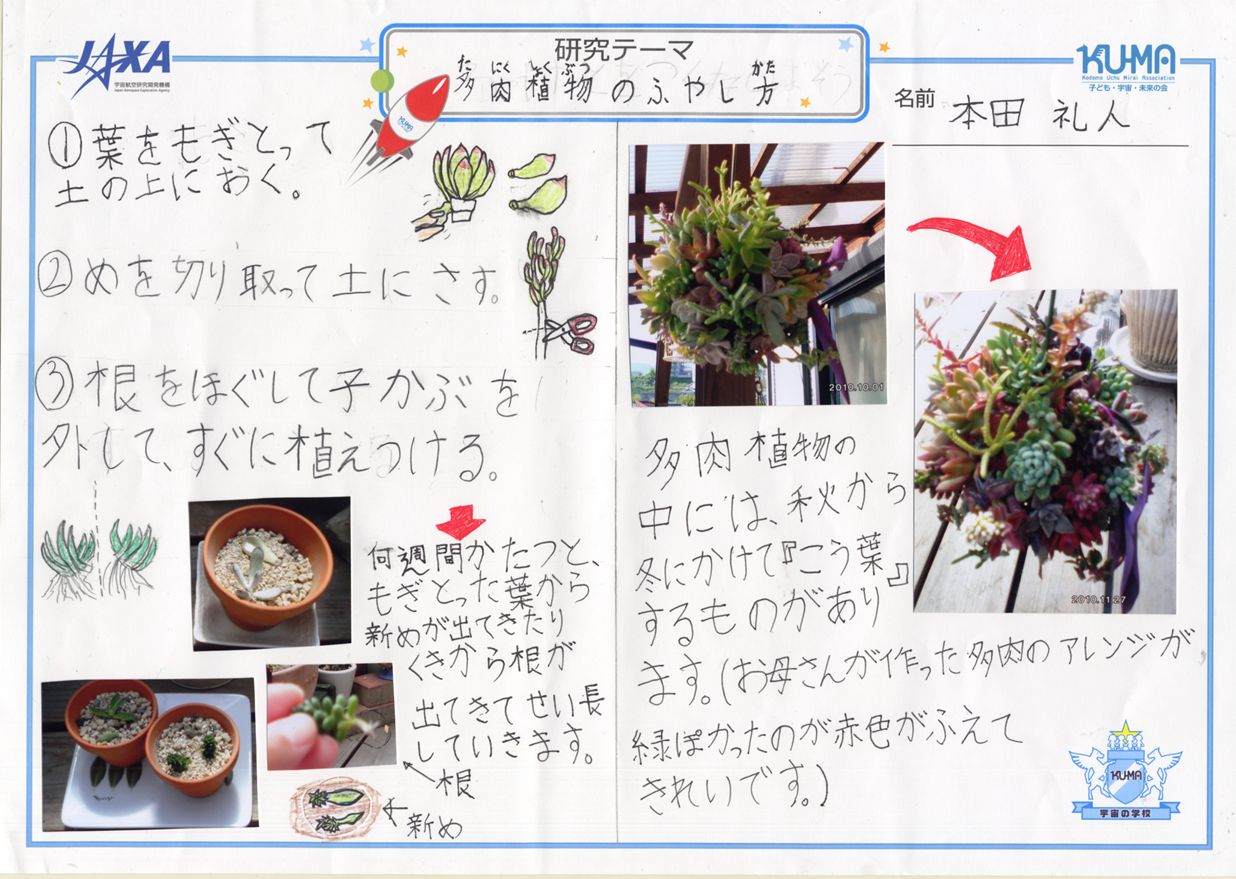 JAXA
宇宙航空研究開発機構
Japan Aerospace Exploration Agency
研究テーマ
た にく しょくぶつ かた
多肉植物のふやし方
KUMA
KUMA
Kodomo Uchu Mirai Association
子ども・宇宙・未来の会
名前 本田 礼人
①葉をもぎとって
土の上におく。
②めを切り取って土にさす。
③根をほぐして子かぶを
外して、すぐに植えつける。
何週間かたつと、
もぎとった葉から
新めが出てきたり
くきから根が
出てきてせい長
していきます。
根
新め
2010.10.01
2010.11.27
多肉植物の
中には、秋から
冬にかけて『こう葉』
するものがあり
ます。(お母さんが作った多肉のアレンジが
緑ぽかったのが赤色がふえて
きれいです。)
KUMA
宇宙の学校